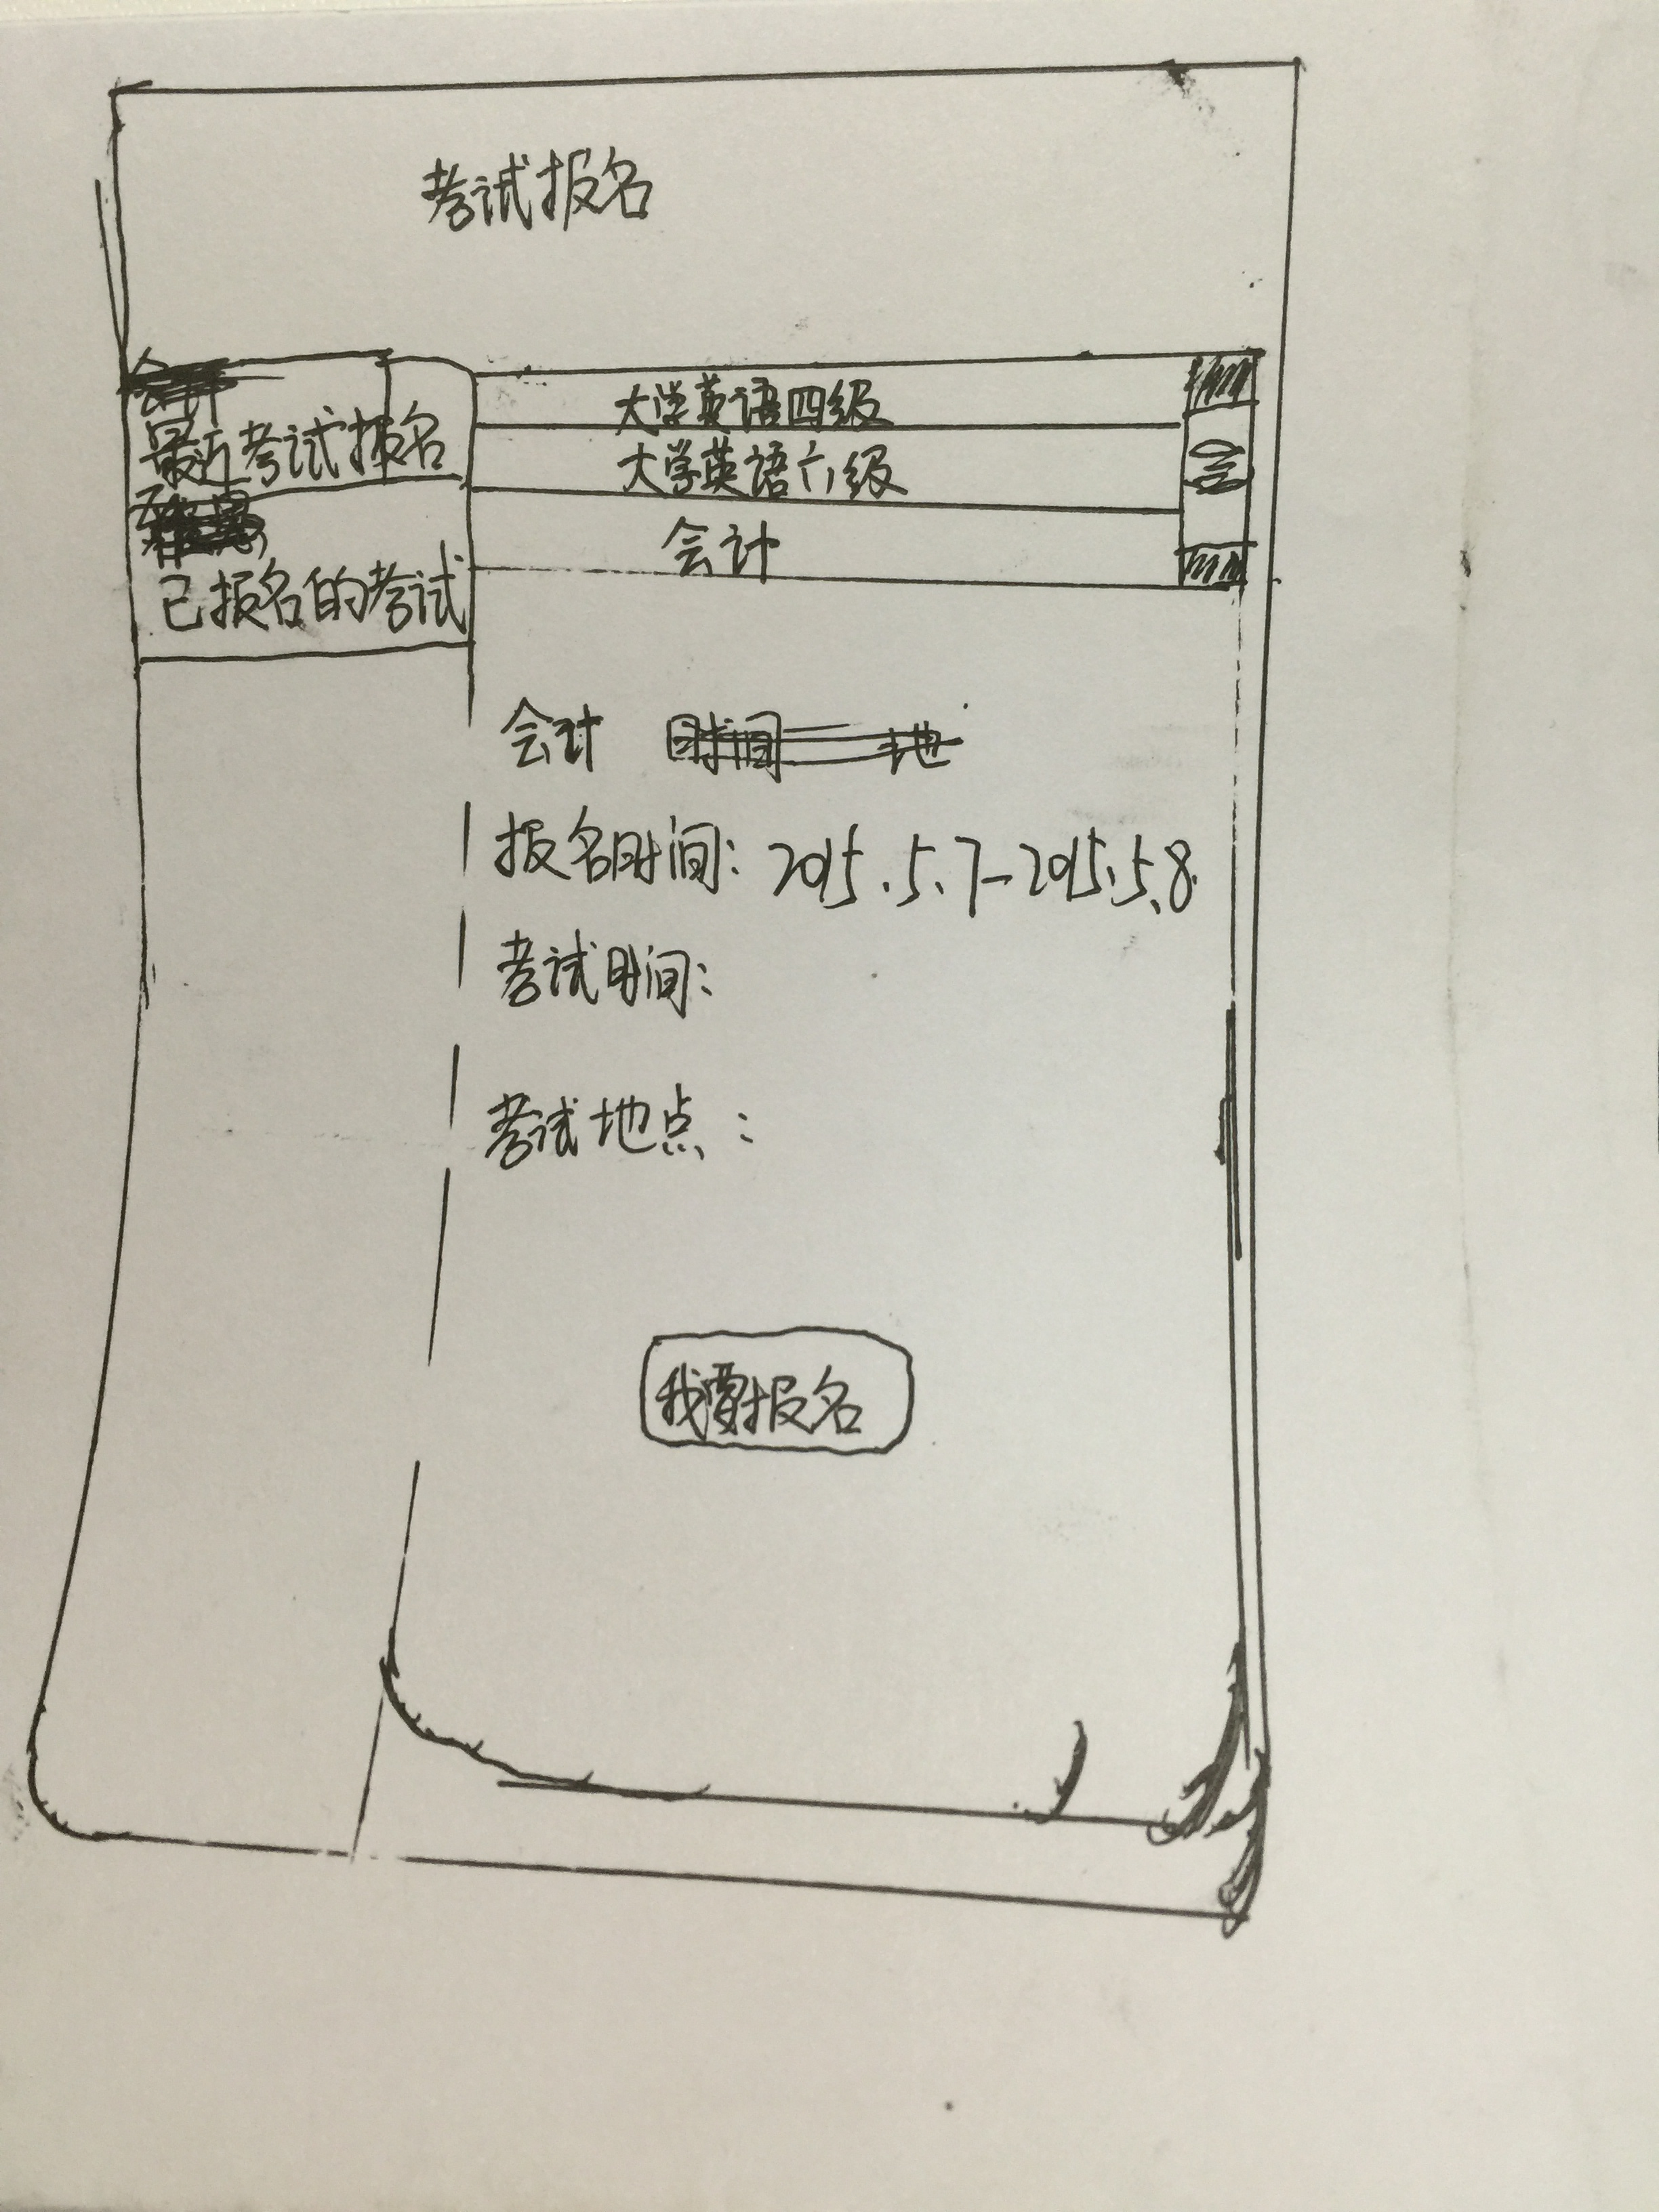 考试报名
最近考试报名
已报名的考试
大学英语四级
大学英语六级
会计
会计
报名时间: 2015.5.7-2015.5.8.
考试时间:
考试地点:
我要报名